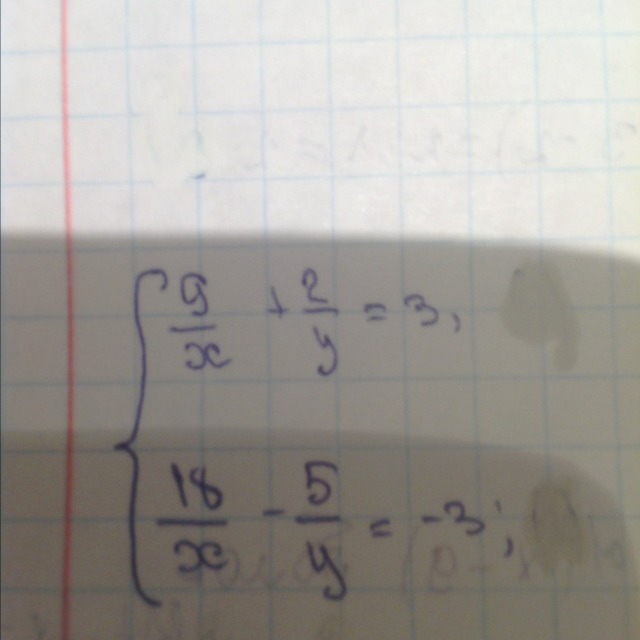 9/x + 2/y = 3,
18/x - 5/y = -3;